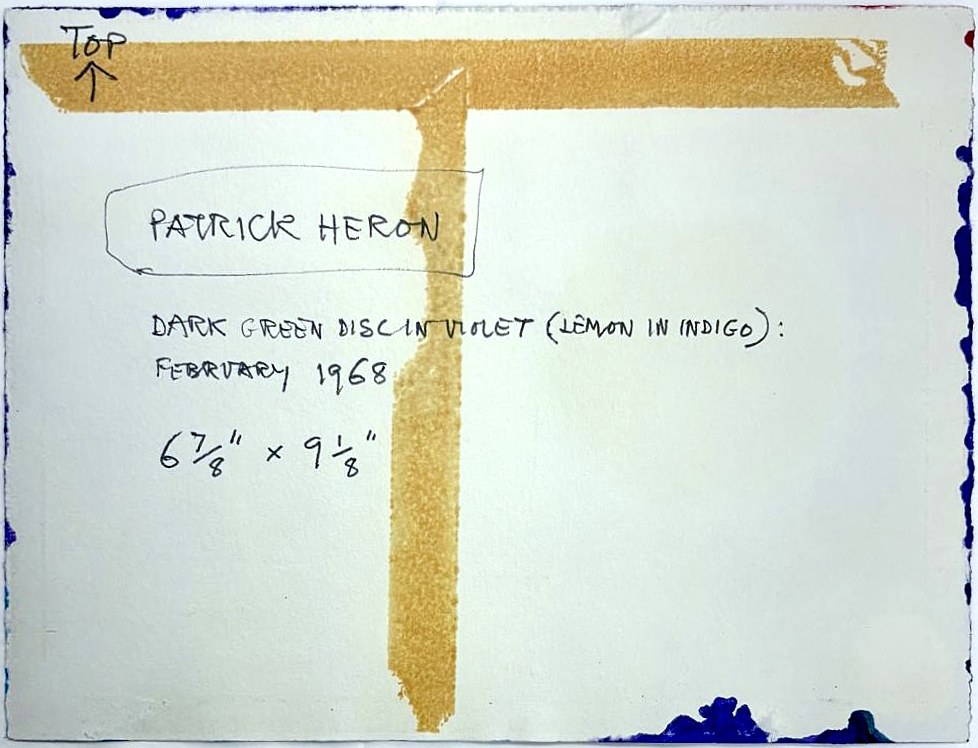 TOP
↑
PATRICK HERON
DARK GREEN DISC IN VIOLET (LEMON IN INDIGO) :
FEBRUARY 1968
6 7/8" × 9 1/8"